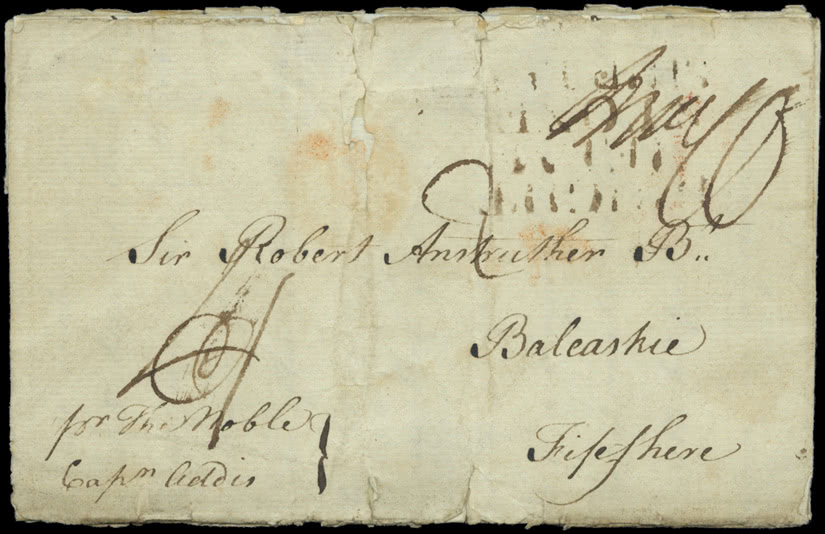 Sir Robert Anstruther Bt..
Balcaskie
Fifsshere
pr The Noble
Capn Addis